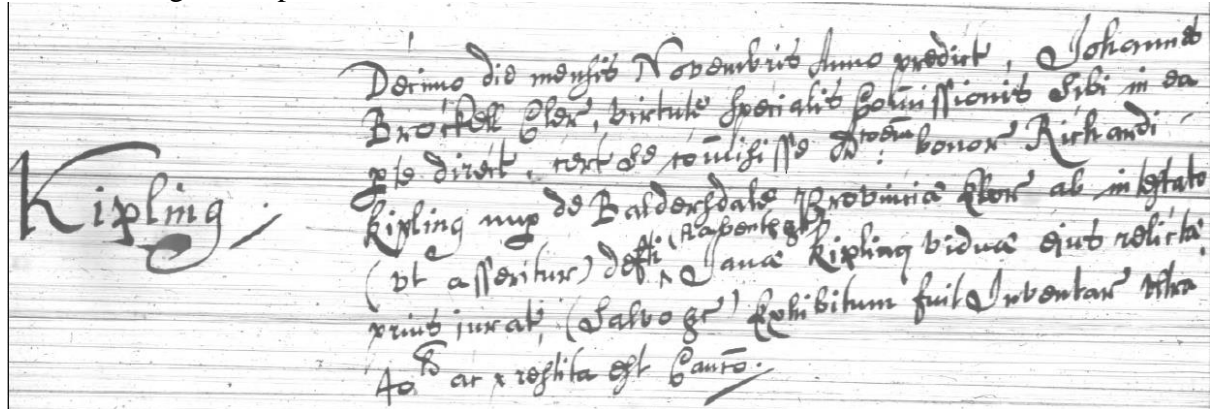 Decimo die mensis Novembris Anno predict, Johannes
Brockell Cler, virtute specialis Comissionis sibi in ea
pte direct, cert se comisisse Adcoem bonor Richardi
Kipling
Kipling nup de Baldersdale Provincia Ebor ab intestato
(ut asseritur) defti, Janae Kipling viduae ejus relictae
prius jurat, (Salvo &c) Exhibitum fuit Inventar ultra
40 ac x restita est Cautio.